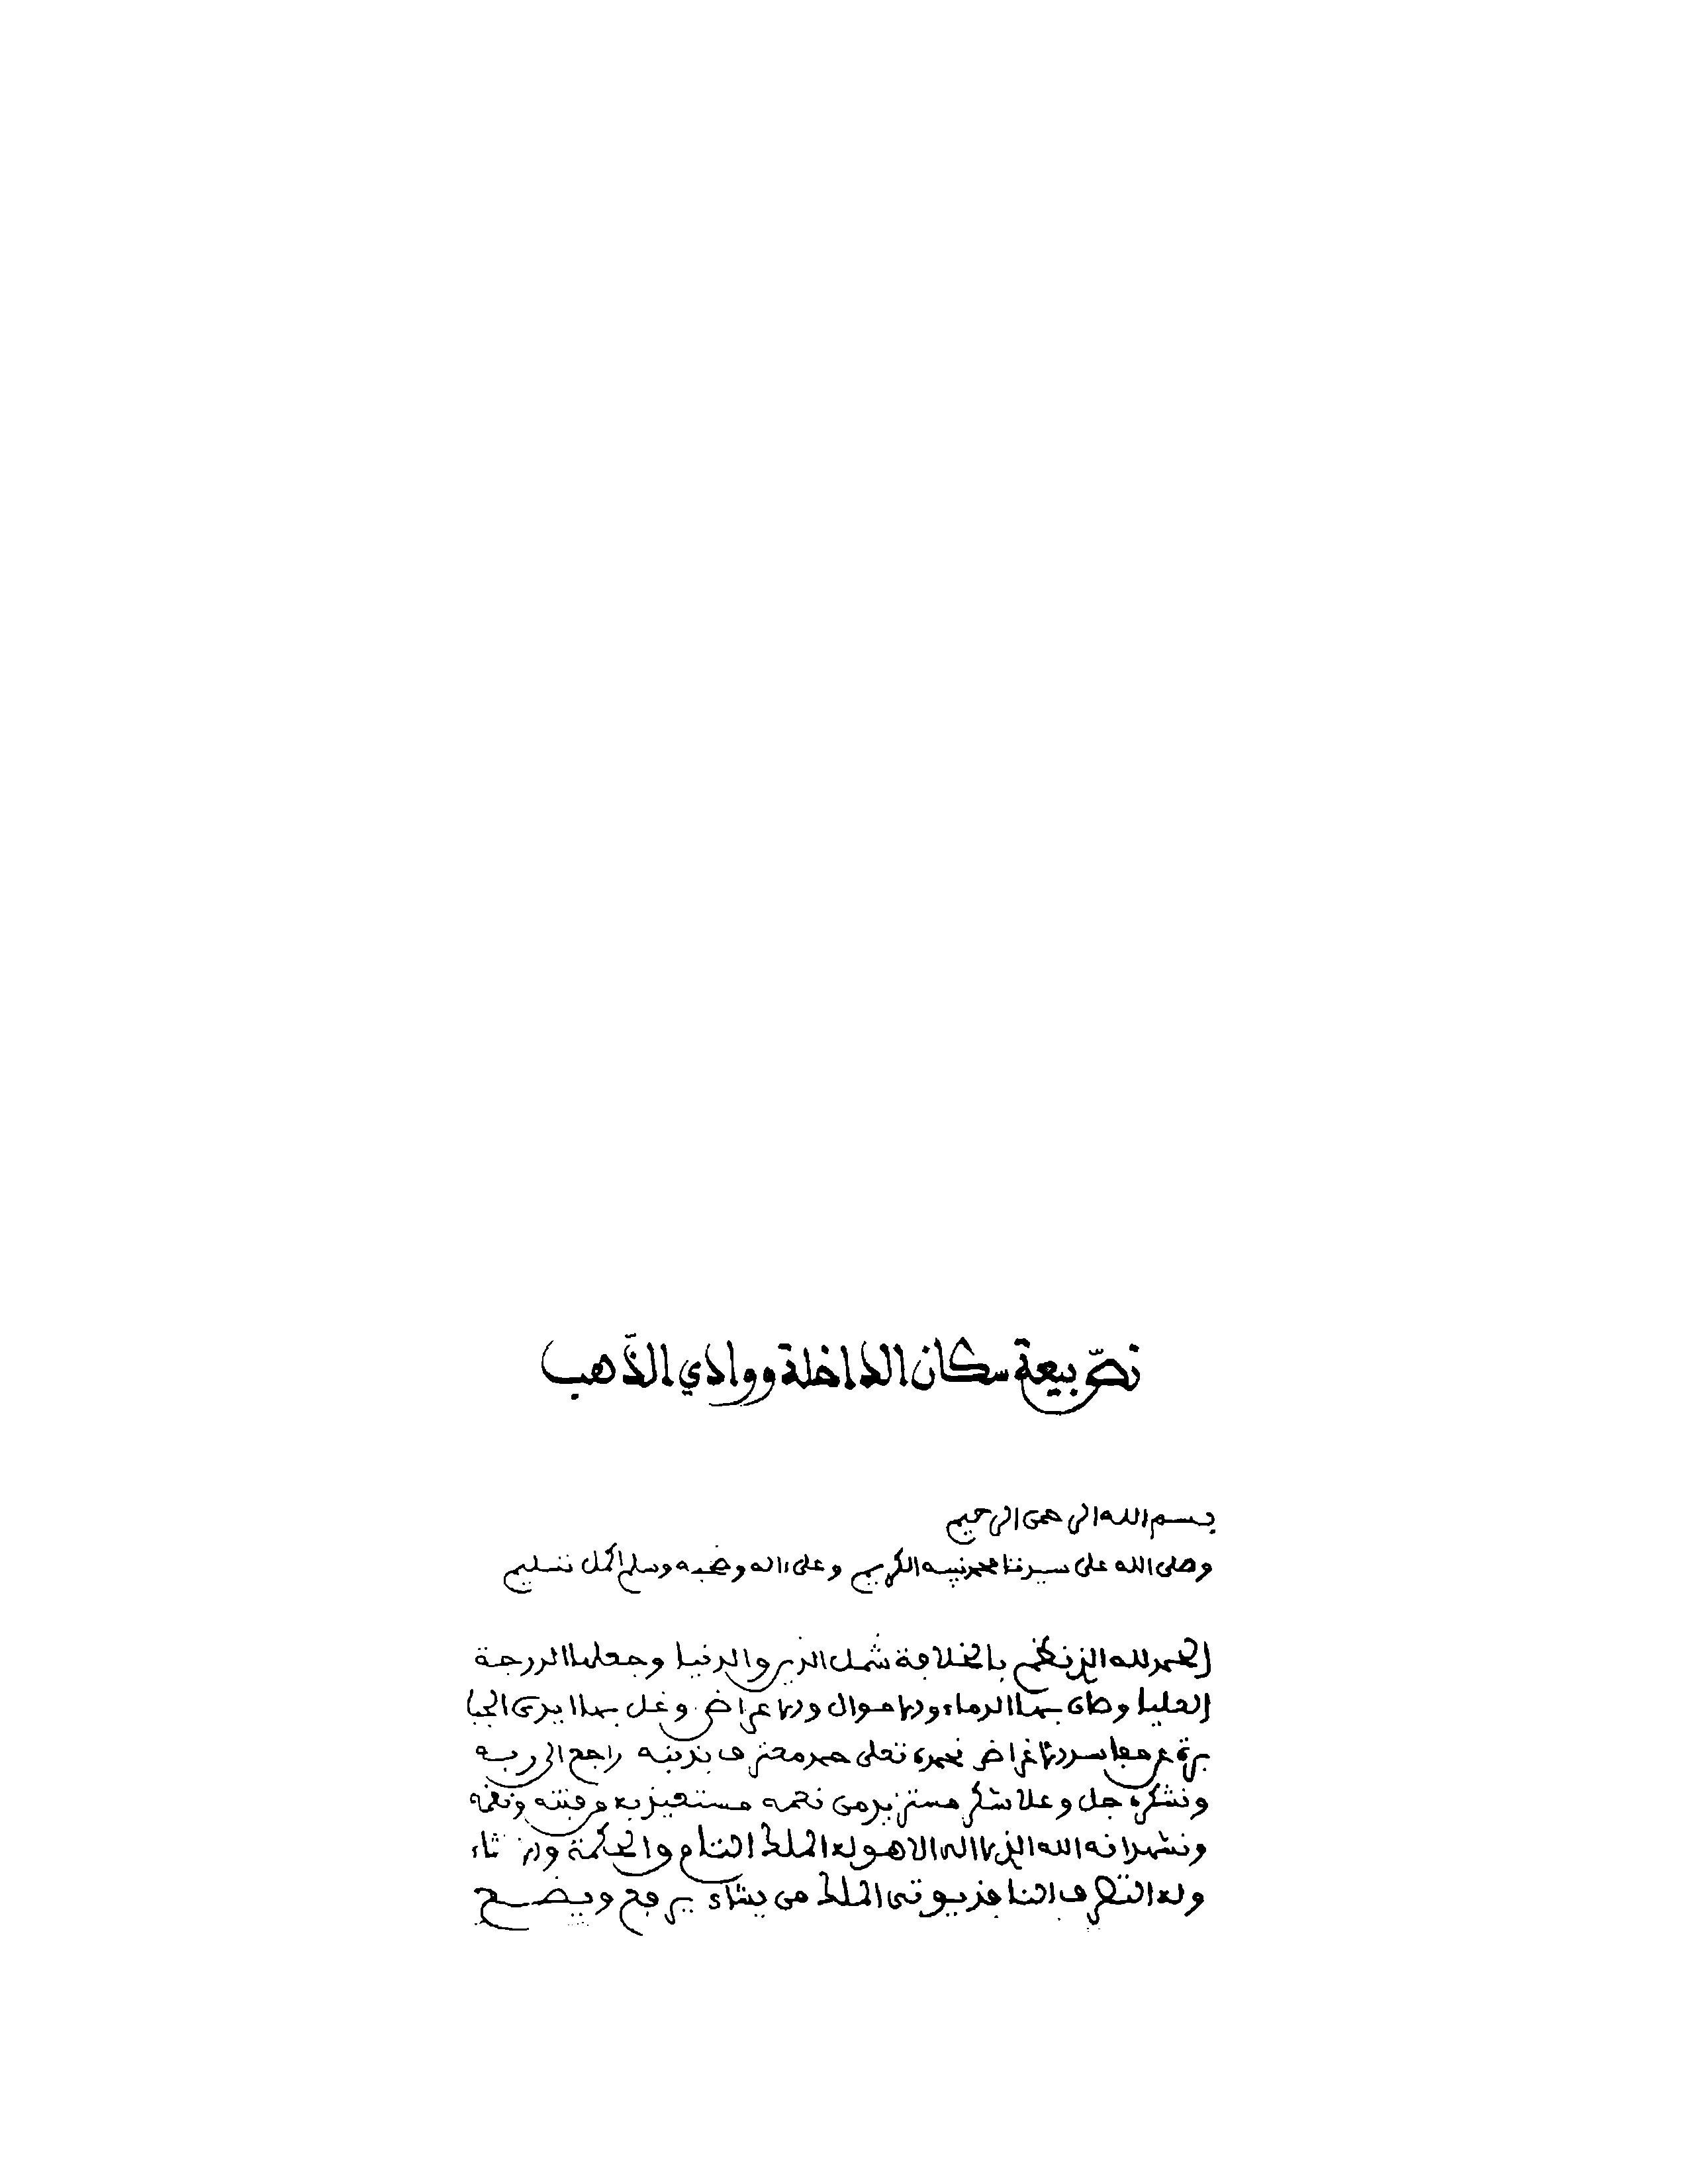 نصّ بيعة سكان الداخلة ووادي الذّهب
بسم الله الرحمن الرحيم
وصلى الله على سيدنا محمد نبيه الكريم وعلى ءاله وصحبه وسلم أكمل تسليم
الحمد لله الذي نظم بالخلافة شمل الدين والدنيا وجعلها الدرجة
العليا وصان بها الدماء والاموال والاعراض وغل بها ايدي الجبا
برة عن مفاسد الاغراض نحمده تعلى حمد معترف بذنبه راجع الى ربه
ونشكره جل وعلا شكر مستزيد من نعمه مستعيذ به من فتنته ونقمه
ونشهد انه الله الذي لا اله الا هو له الملك التام والحكمة
وله التصرف النافذ يوتي الملك من يشاء يرفع ويضع